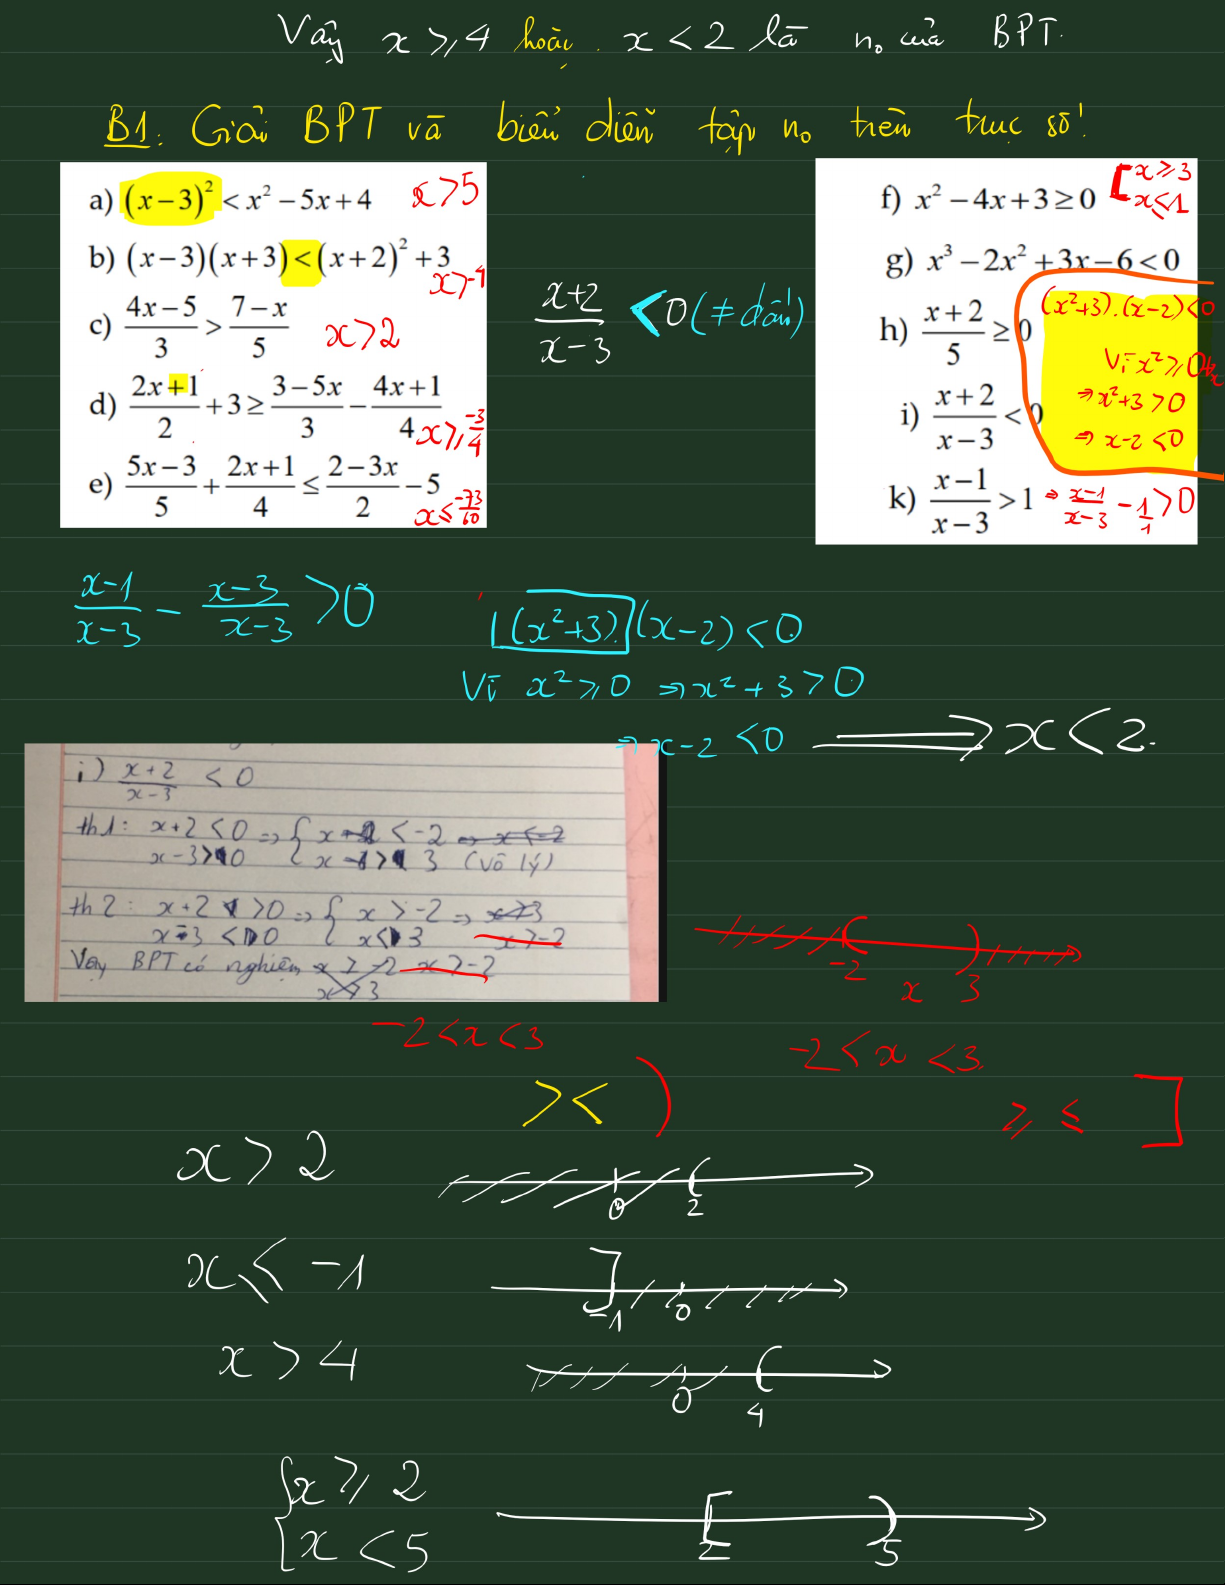 Vậy x ≥ 4 hoặc x < 2 là n₀ của BPT.
B1: Giải BPT và biểu diễn tập n₀ trên trục số!
a) (x−3)² < x² − 5x + 4 x > 5
b) (x−3)(x+3) < (x+2)² + 3
x > -4
c) (4x−5)/3 > (7−x)/5 x > 2
d) (2x+1)/2 + 3 ≥ (3−5x)/3 − (4x+1)/4 x ≥ -3/4
e) (5x−3)/5 + (2x+1)/4 ≤ (2−3x)/2 − 5 x ≤ -73/60
(x+2)/(x−3) < 0 (≠ dấu)
f) x² − 4x + 3 ≥ 0 [x ≥ 3
x ≤ 1
g) x³ − 2x² + 3x − 6 < 0
(x²+3).(x−2) < 0
h) (x+2)/5 ≥ 0
Vì x² ≥ 0 ∀x
⇒ x²+3 > 0
i) (x+2)/(x−3) < 0
⇒ x−2 < 0
k) (x−1)/(x−3) > 1 ⇒ (x−1)/(x−3) − 1/1 > 0
(x−1)/(x−3) − (x−3)/(x−3) > 0
(x²+3).(x−2) < 0
Vì x² ≥ 0 ⇒ x² + 3 > 0
⇒ x−2 < 0 ⟹ x < 2.
i) (x+2)/(x−3) < 0
th1: x+2 < 0 ⇒ { x < -2 ⇒ x < -2
x−3 > 0 { x > 3 (Vô lý)
th2: x+2 > 0 ⇒ { x > -2 ⇒ x > 3
x−3 < 0 { x < 3 x > -2
Vậy BPT có nghiệm x > -2 x > -2
x > 3
-2 x 3
-2 < x < 3
-2 < x < 3.
> < )
≥ ≤ ]
x > 2
0 2
x ≤ -1
-1 0
x > 4
0 4
{x ≥ 2
x < 5
2 5